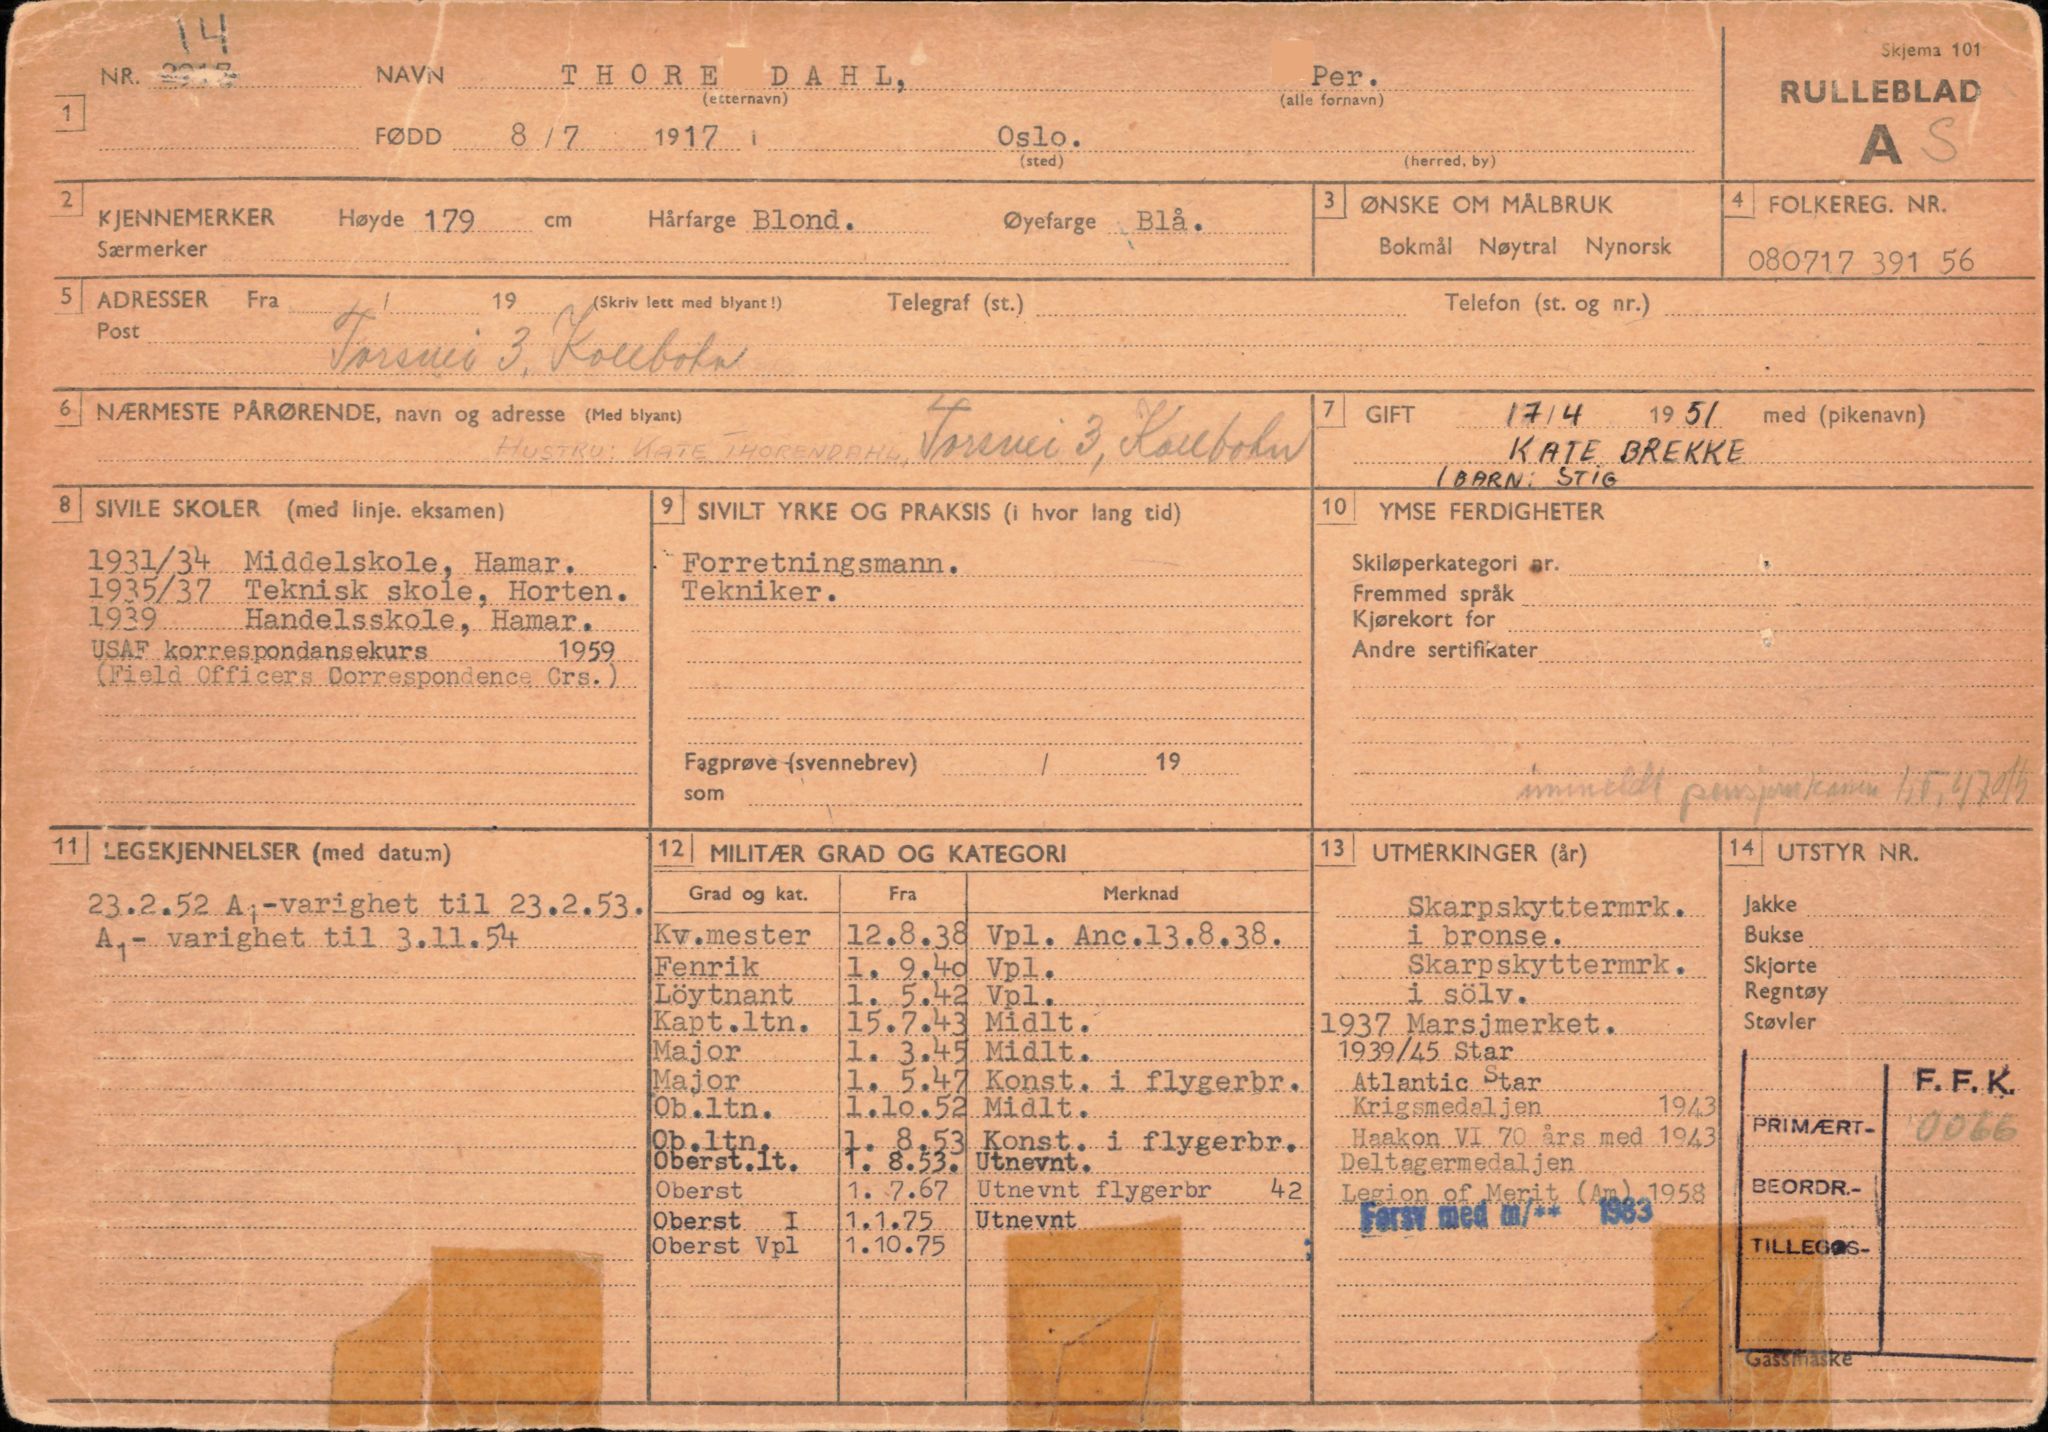 14
Skjema 101
NR. 2917 NAVN THORE DAHL, Per.
(etternavn) (alle fornavn)
RULLEBLAD
1
FØDD 8/7 1917 i Oslo.
(sted) (herred, by)
A S
2 KJENNEMERKER Høyde 179 cm Hårfarge Blond. Øyefarge Blå.
Særmerker
3 ØNSKE OM MÅLBRUK
Bokmål Nøytral Nynorsk
4 FOLKEREG. NR.
080717 391 56
5 ADRESSER Fra / 19 (Skriv lett med blyant!) Telegraf (st.) Telefon (st. og nr.)
Post
Torsvei 3, Kolbotn
6 NÆRMESTE PÅRØRENDE, navn og adresse (Med blyant)
HUSTRU: KATE THORENDAHL, Torsvei 3, Kolbotn
7 GIFT 17/4 1951 med (pikenavn)
KATE BREKKE
1 BARN: STIG
8 SIVILE SKOLER (med linje. eksamen)
1931/34 Middelskole, Hamar.
1935/37 Teknisk skole, Horten.
1939 Handelsskole, Hamar.
USAF korrespondansekurs 1959
(Field Officers Correspondence Crs.)
9 SIVILT YRKE OG PRAKSIS (i hvor lang tid)
Forretningsmann.
Tekniker.
Fagprøve (svennebrev) / 19
som
10 YMSE FERDIGHETER
Skiløperkategori nr.
Fremmed språk
Kjørekort for
Andre sertifikater
innmeldt pensjonskassen
11 LEGEKJENNELSER (med datum)
23.2.52 A1-varighet til 23.2.53.
A1- varighet til 3.11.54
12 MILITÆR GRAD OG KATEGORI
Grad og kat. Fra Merknad
Kv.mester 12.8.38 Vpl. Anc.13.8.38.
Fenrik 1. 9.40 Vpl.
Löytnant 1. 5.42 Vpl.
Kapt.ltn. 15.7.43 Midlt.
Major 1. 3.45 Midlt.
Major 1. 5.47 Konst. i flygerbr.
Ob.ltn. 1.10.52 Midlt.
Ob.ltn. 1. 8.53 Konst. i flygerbr.
Oberst.lt. 1. 8.53. Utnevnt.
Oberst 1. 7.67 Utnevnt flygerbr 42
Oberst I 1.1.75 Utnevnt
Oberst Vpl 1.10.75
13 UTMERKINGER (år)
Skarpskyttermrk.
i bronse.
Skarpskyttermrk.
i sölv.
1937 Marsjmerket.
1939/45 Star
Atlantic Star
Krigsmedaljen 1943
Haakon VI 70 års med 1943
Deltagermedaljen
Legion of Merit (Am) 1958
Forsv med m/** 1983
14 UTSTYR NR.
Jakke
Bukse
Skjorte
Regntøy
Støvler
F. F. K.
PRIMÆRT- 0066
BEORDR.-
TILLEGGS-
Gassmaske